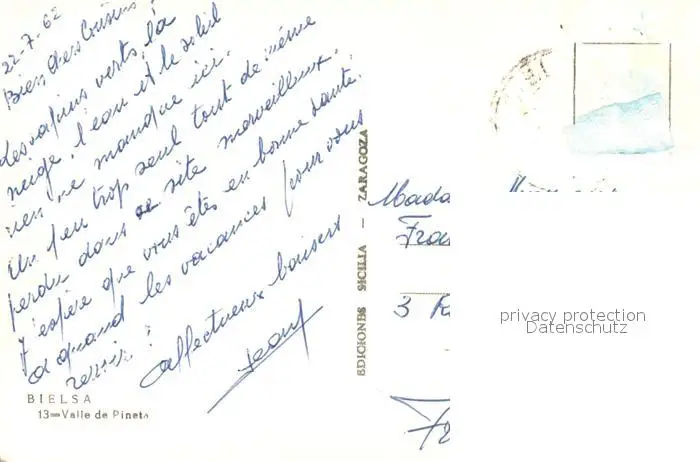 22-7-62
Bien des Cousins !
des sapins verts, la
neige, l'eau et le soleil
rien ne manque ici.
Un peu trop seul tout de même
perdu dans ce site merveilleux.
J'espère que vous êtes en bonne santé.
a quand les vacances pour vous
affectueux baisers
Jean
BIELSA
13 - Valle de Pineta
EDICIONES SICILIA - ZARAGOZA
Mada
Fra
3 R
Fr
privacy protection
Datenschutz